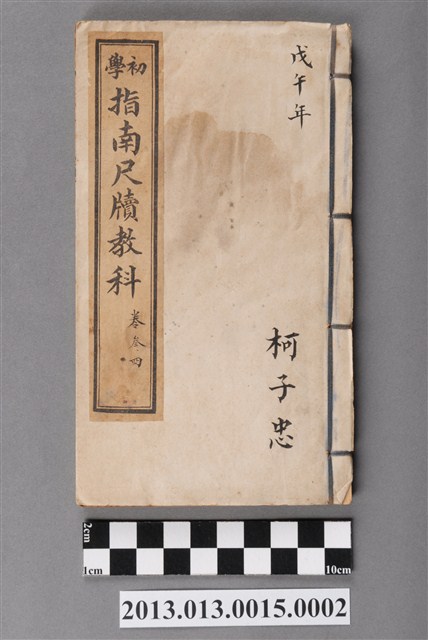 戊午年
柯子忠
初學
指南尺牘教科
卷叁四
2cm
1cm
10cm
2013.013.0015.0002